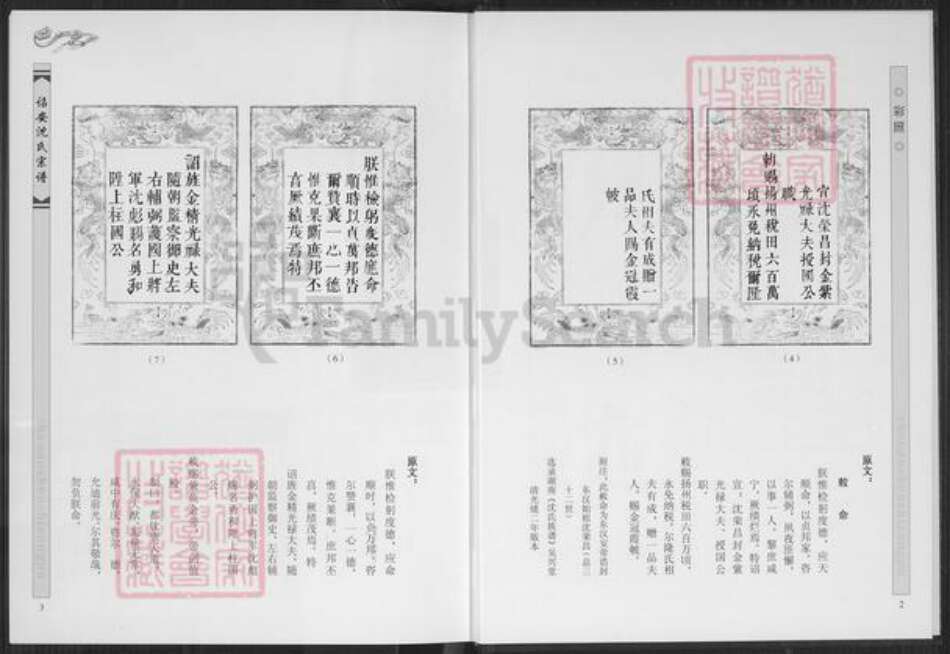 彩照
宜沈荣昌封金紫
光禄大夫授國公
職
朝賜揚州税田六百萬
頃永免納稅爾隆
(4)
氏相夫有成贈一
品夫人賜金冠霞
帔
(5)
原文：
敕 命
朕惟检躬度德，应天
顺命，以贞邦家，咨
尔辅弼，夙夜匪懈，
以事一人，黎庶咸
宁，厥绩烂焉，特诏
宜，沈荣昌封金紫
光禄大夫，授国公
职。
敕赐扬州税田六百万顷，
永免纳税，尔隆氏相
夫有成，赠一品夫
人，赐金冠霞帔。
附注：此敕命为东汉安帝诰封
东汉始祖沈荣昌（品三
十二世）
选录湖南《沈氏族谱》吴兴堂
清光绪二年版本
2
诏安沈氏宗谱
朕惟檢躬度德應命
順時以貞萬邦咨
爾贊襄一心一德
惟克果斷庶邦丕
喜厥績茂焉特
(6)
詔旌金精光禄大夫
隨朝監察御史左
右輔弼護國上將
軍沈彪賜名勇和
陞上柱國公
(7)
原文：
朕惟检躬度德，应命
顺时，以贞万邦，咨
尔赞襄，一心一德，
惟克果断，庶邦丕
喜，厥绩茂焉，特
诏旌金精光禄大夫，随
朝监察御史，左右辅
弼护国上将军沈彪
赐名勇和陞上柱国
公。
允迪前光，尔其敬哉，
勿负朕命。
3
FamilySearch